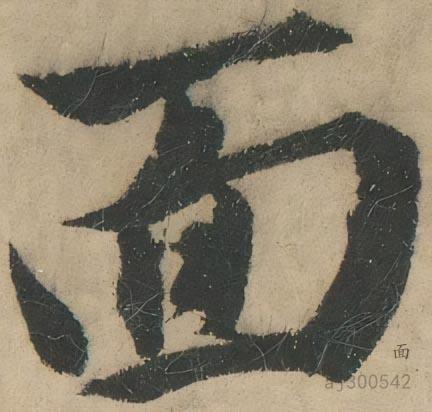 面
面
aj300542